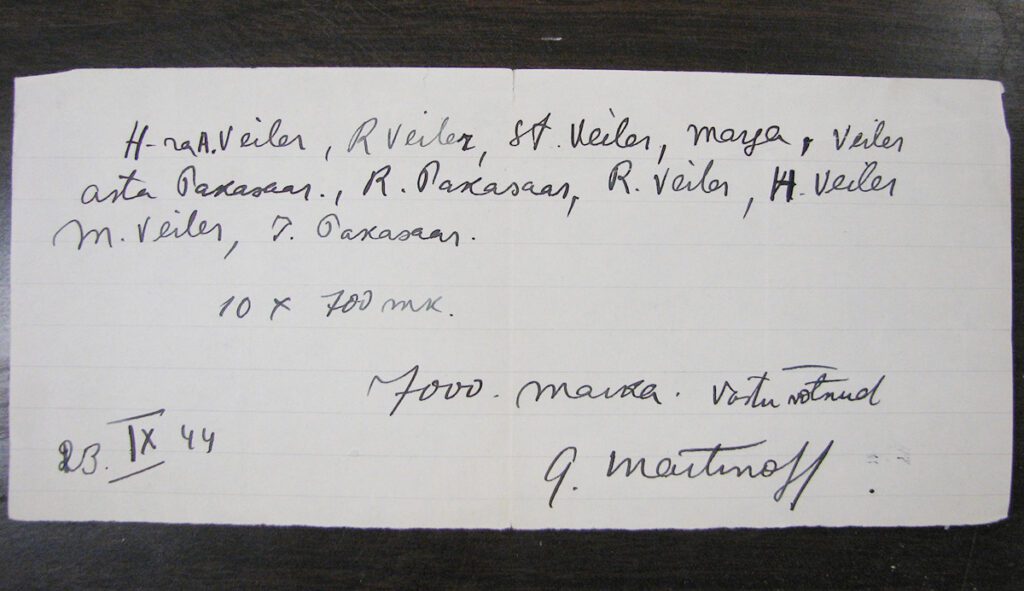 H-ra A. Veiler, R Veiler, St. Veiler, Marga, Veiler
Asta Paxasaar., R. Paxasaar, R. Veiler, H. Veiler
M. Veiler, J. Paxasaar.
10 x 700 mk.
7000. marka. Vastu võtnud
23. IX 44
G. Martinoff.